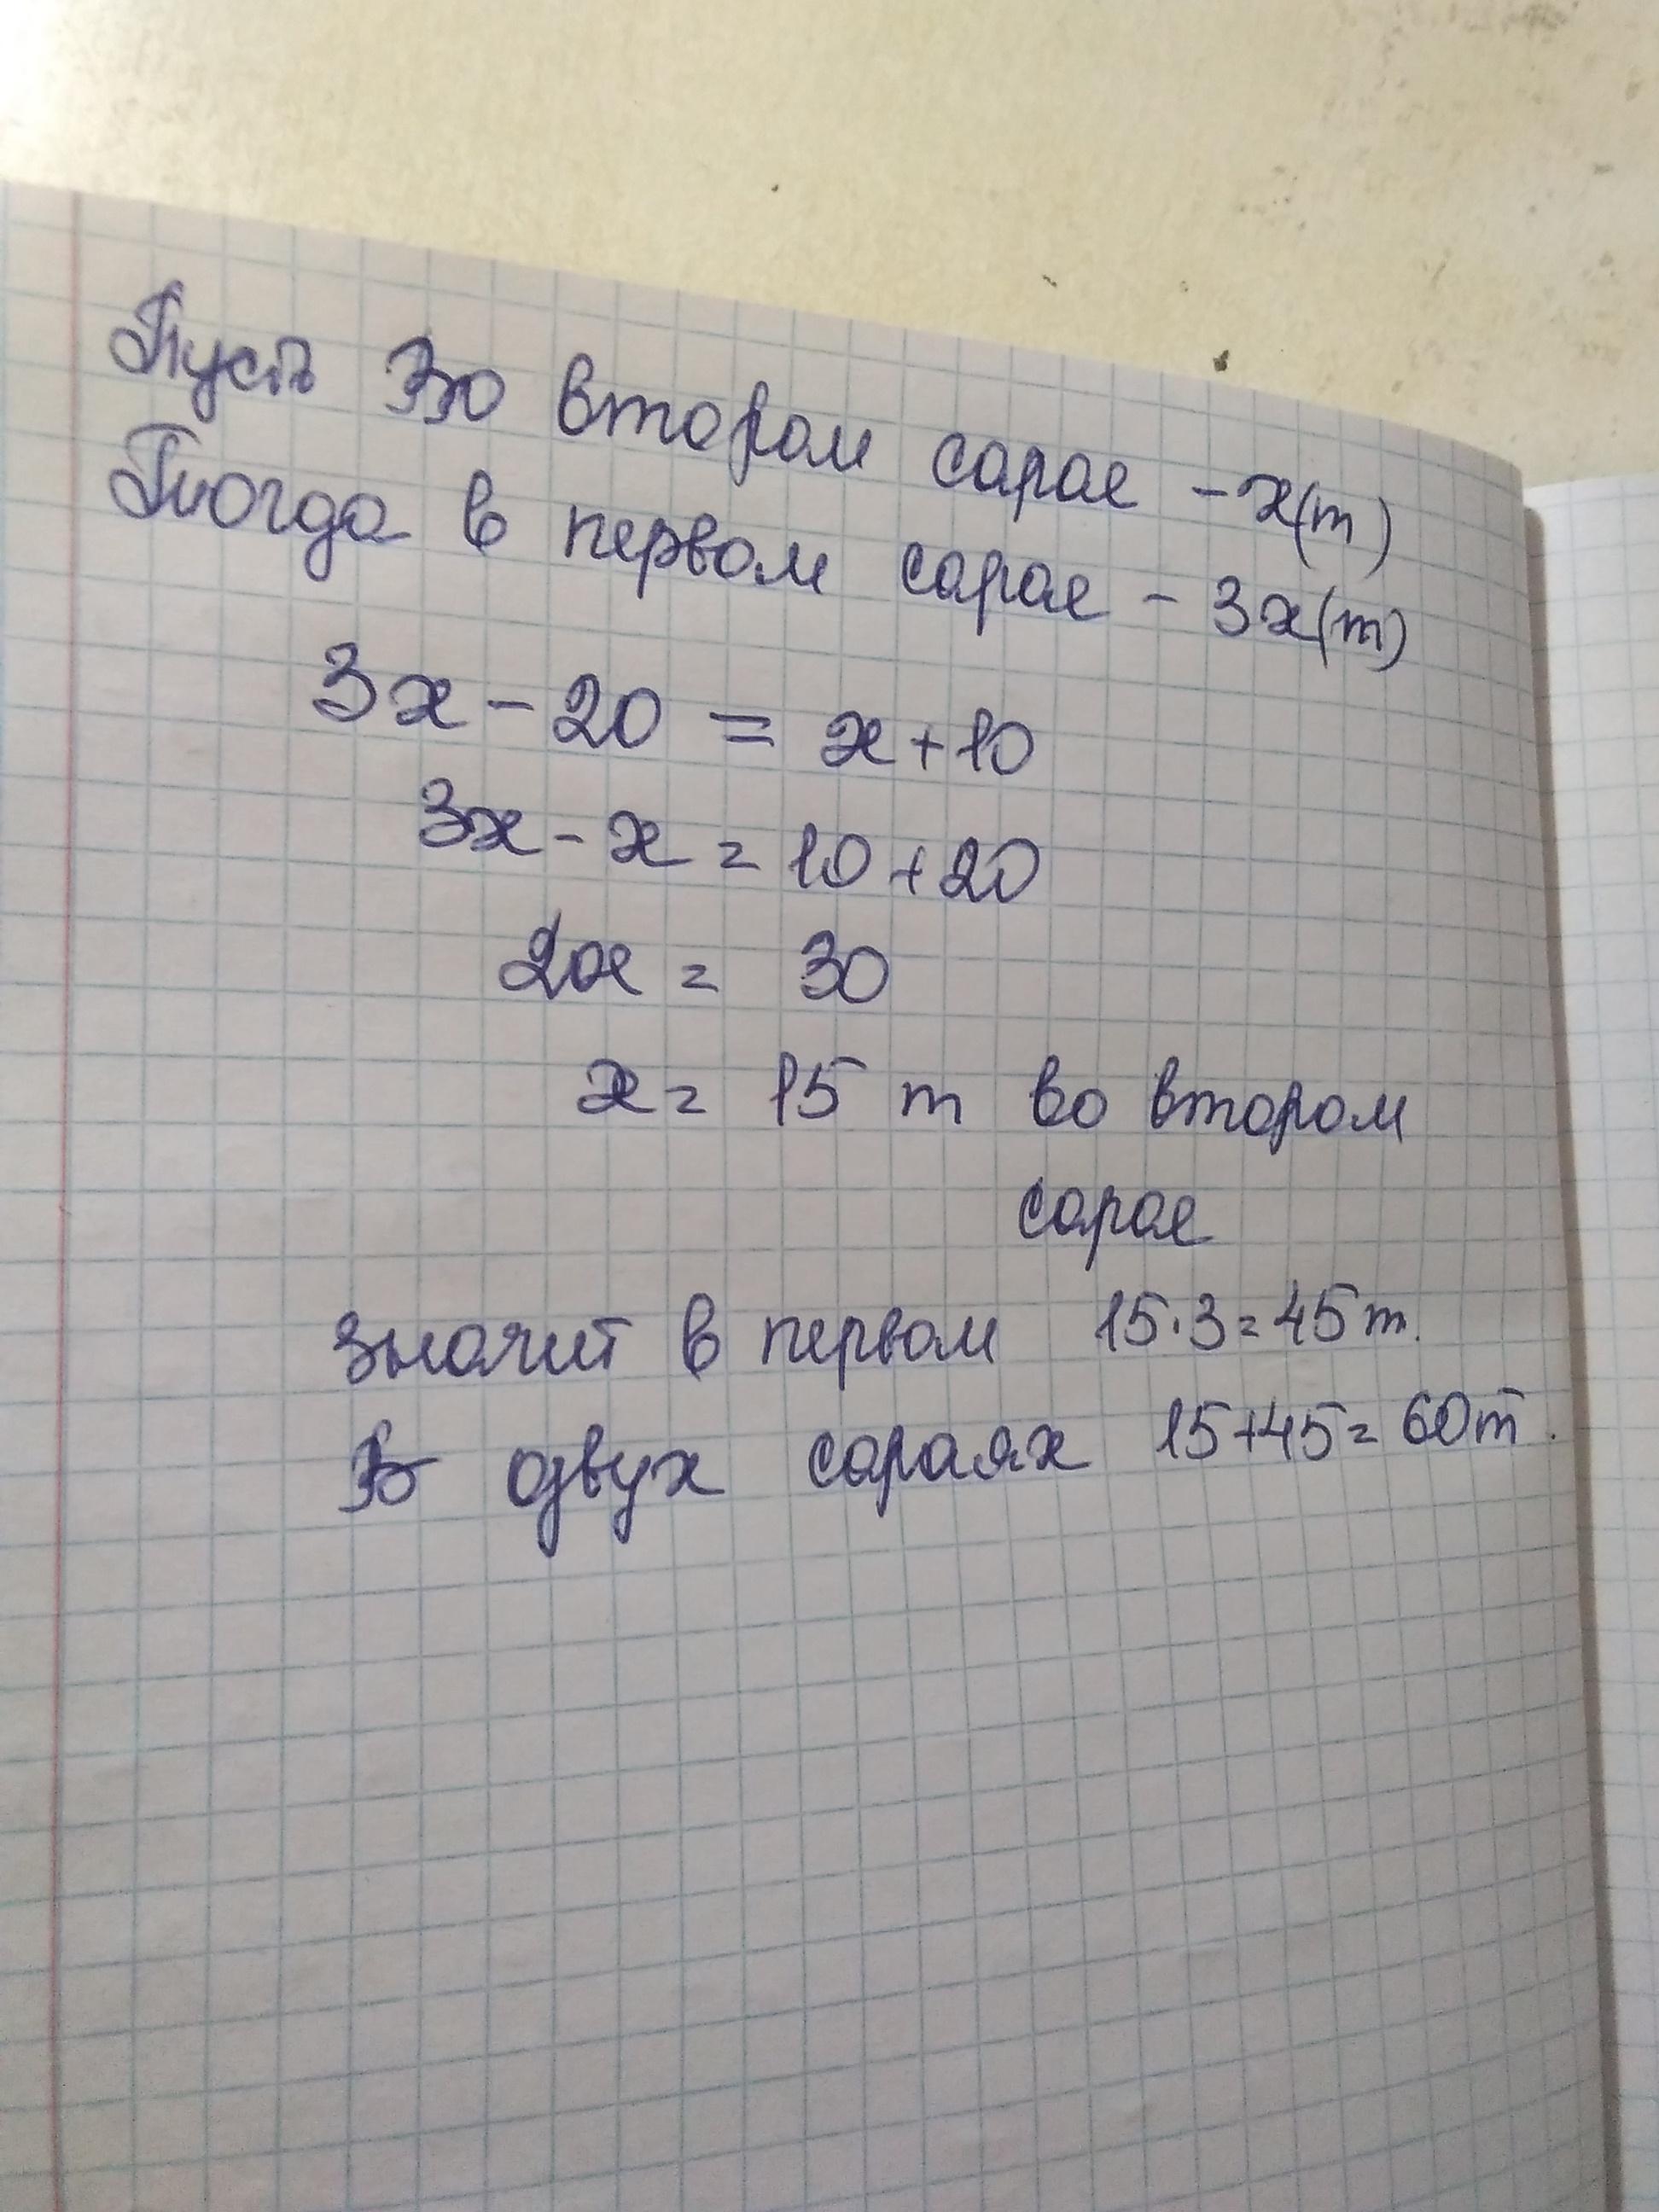 Пусть во втором сарае - x(т)
Тогда в первом сарае - 3x(т)
3x - 20 = x + 10
3x - x = 10 + 20
2x = 30
x = 15 т во втором
сарае
значит в первом 15·3=45т.
В двух сараях 15+45=60т.